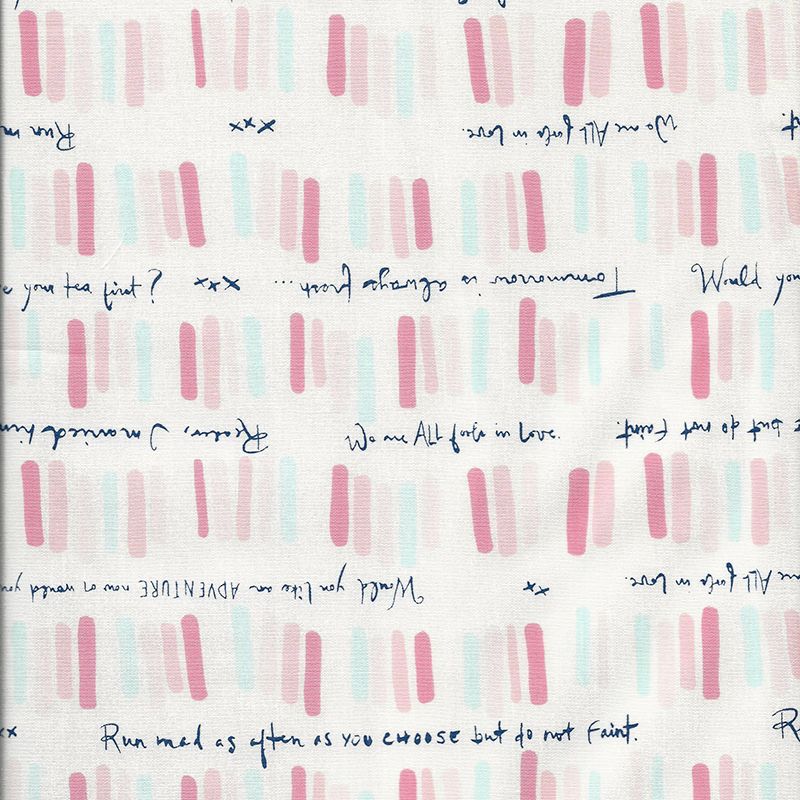 Run m
xxx
We are ALL fools in love.
e your tea first? xxx Tommorrow is always fresh ... Would you
Reader, I married him
We are ALL fools in love.
t but do not faint
Would you like an ADVENTURE now or would you
xx
We are ALL fools in love.
xx Run mad as often as you CHOOSE but do not faint. R